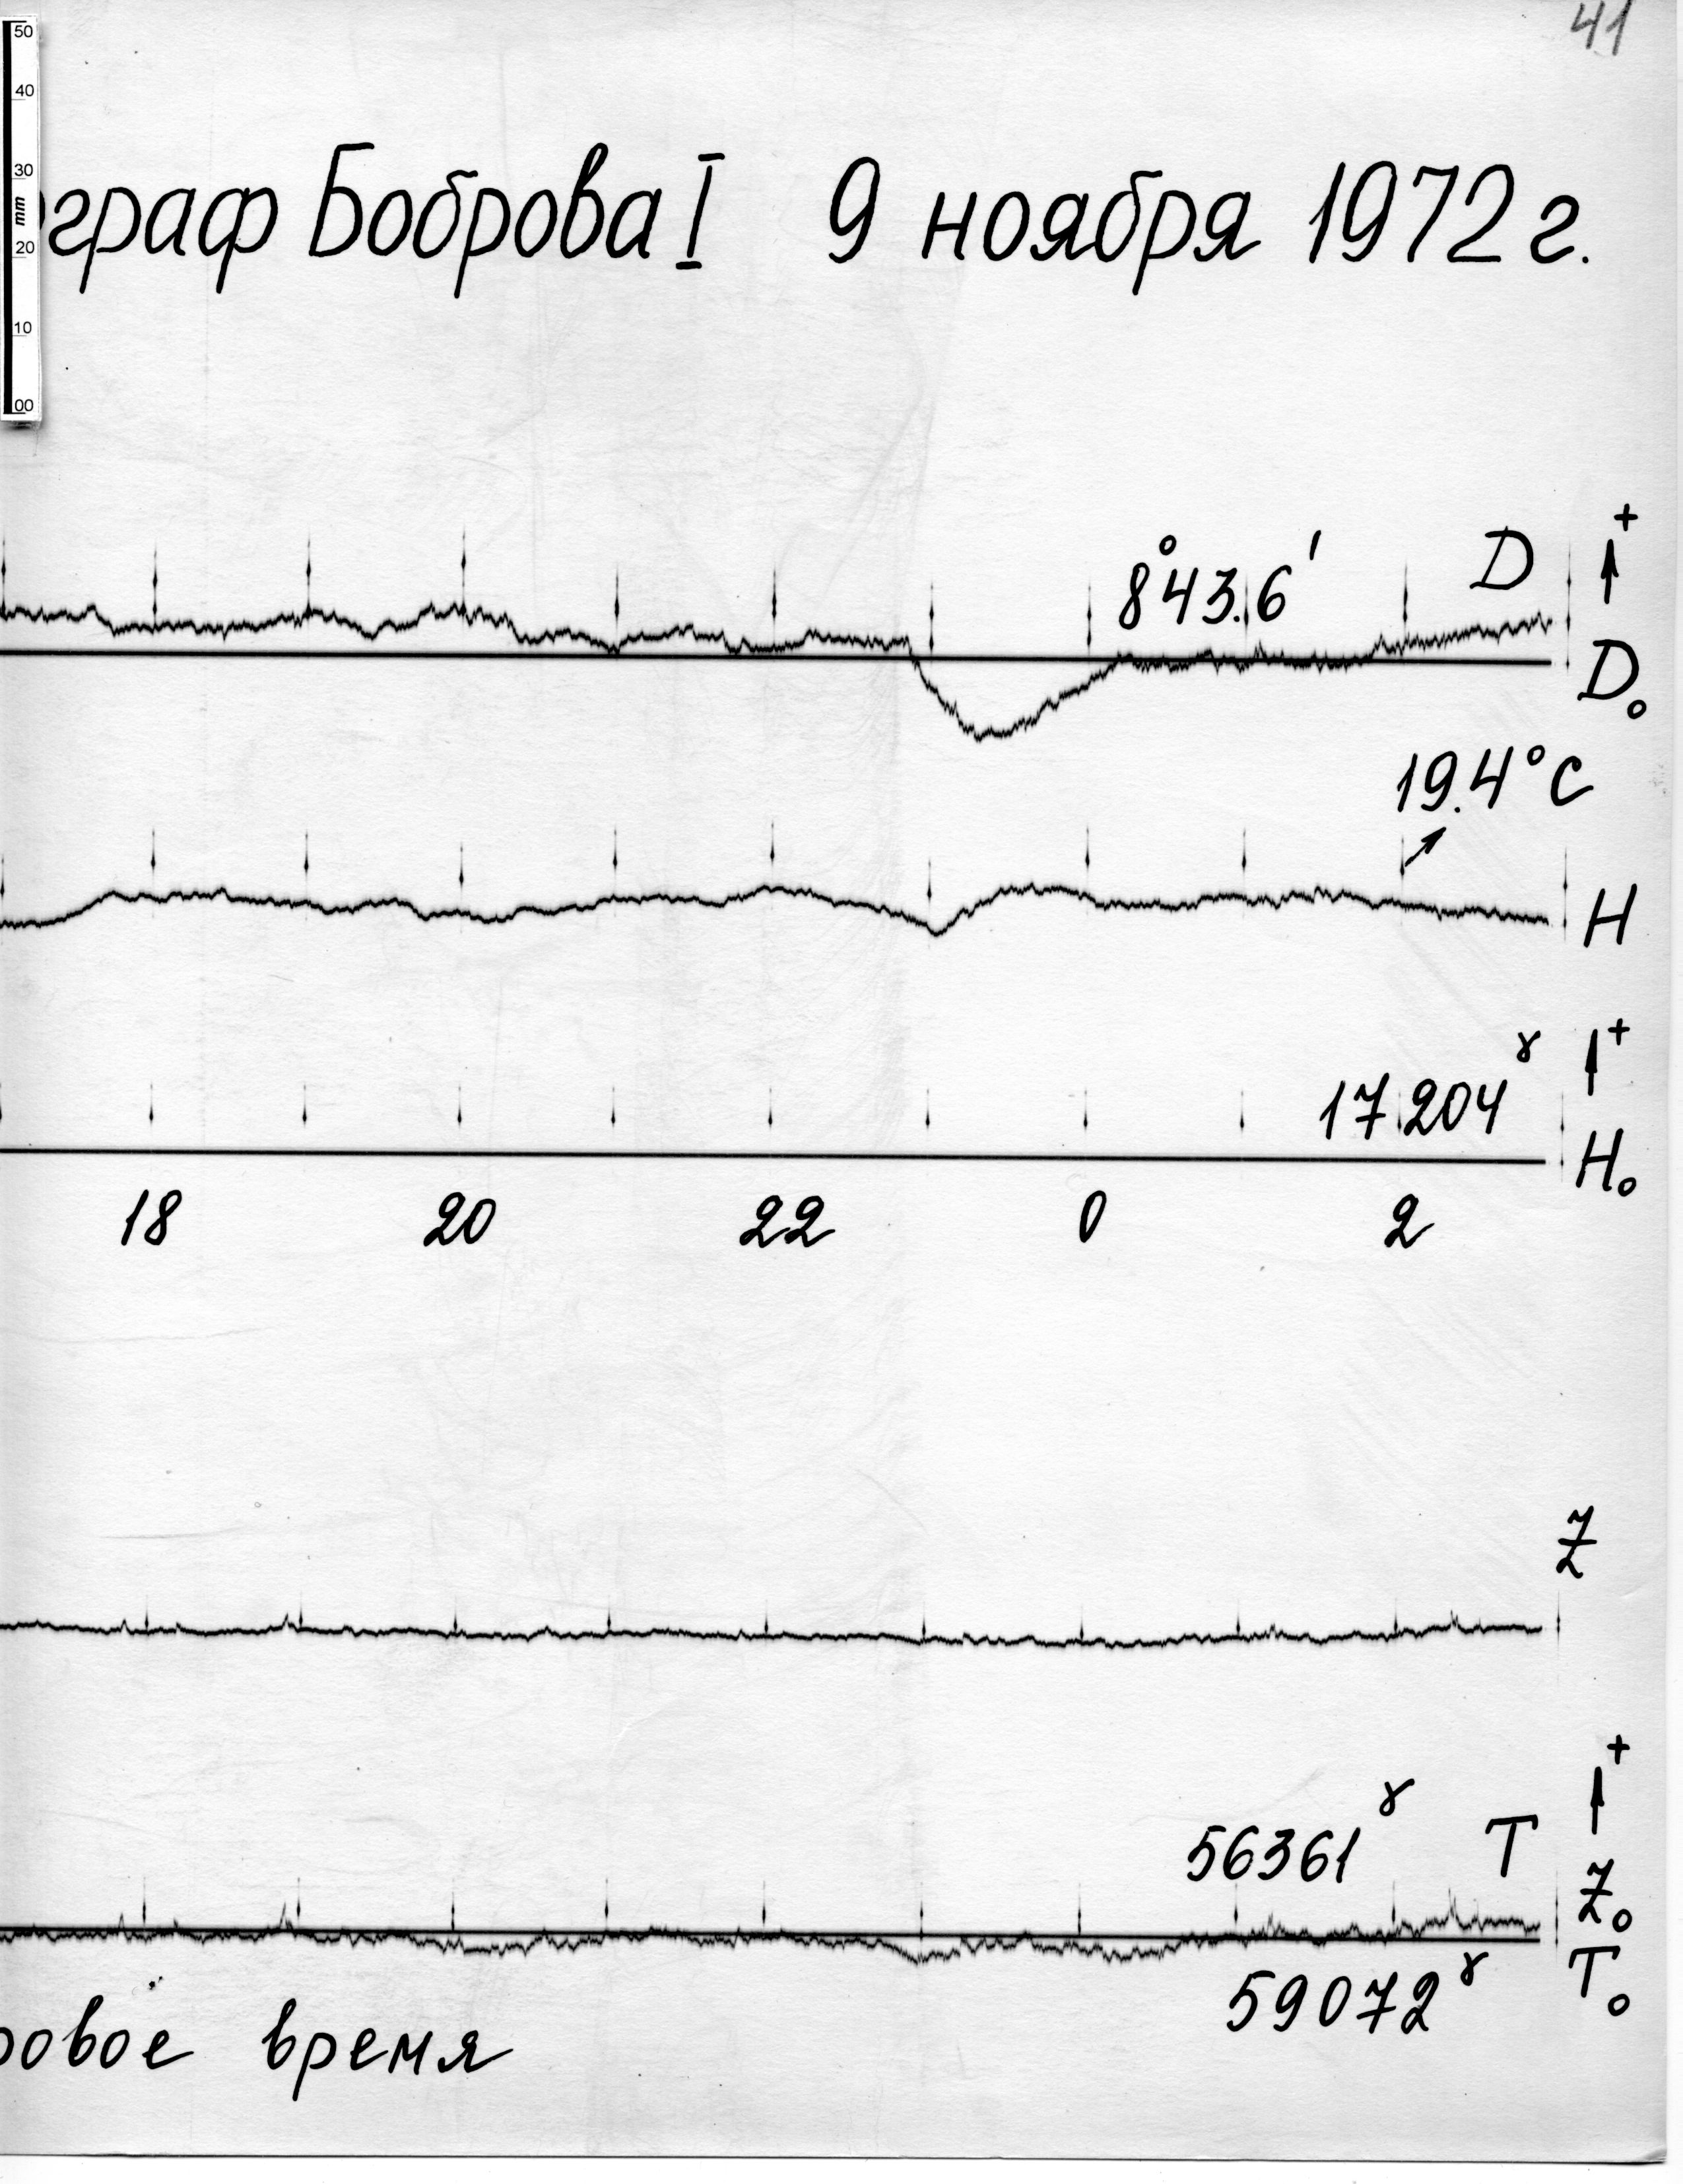 41
50
40
30
mm
20
10
00
ограф Боброва I 9 ноября 1972 г.
8°43.6′ D +
D₀
19.4°C
H
γ +
17204
H₀
18 20 22 0 2
Z
+
56361γ T
Z₀
T₀
59072γ
ровое время